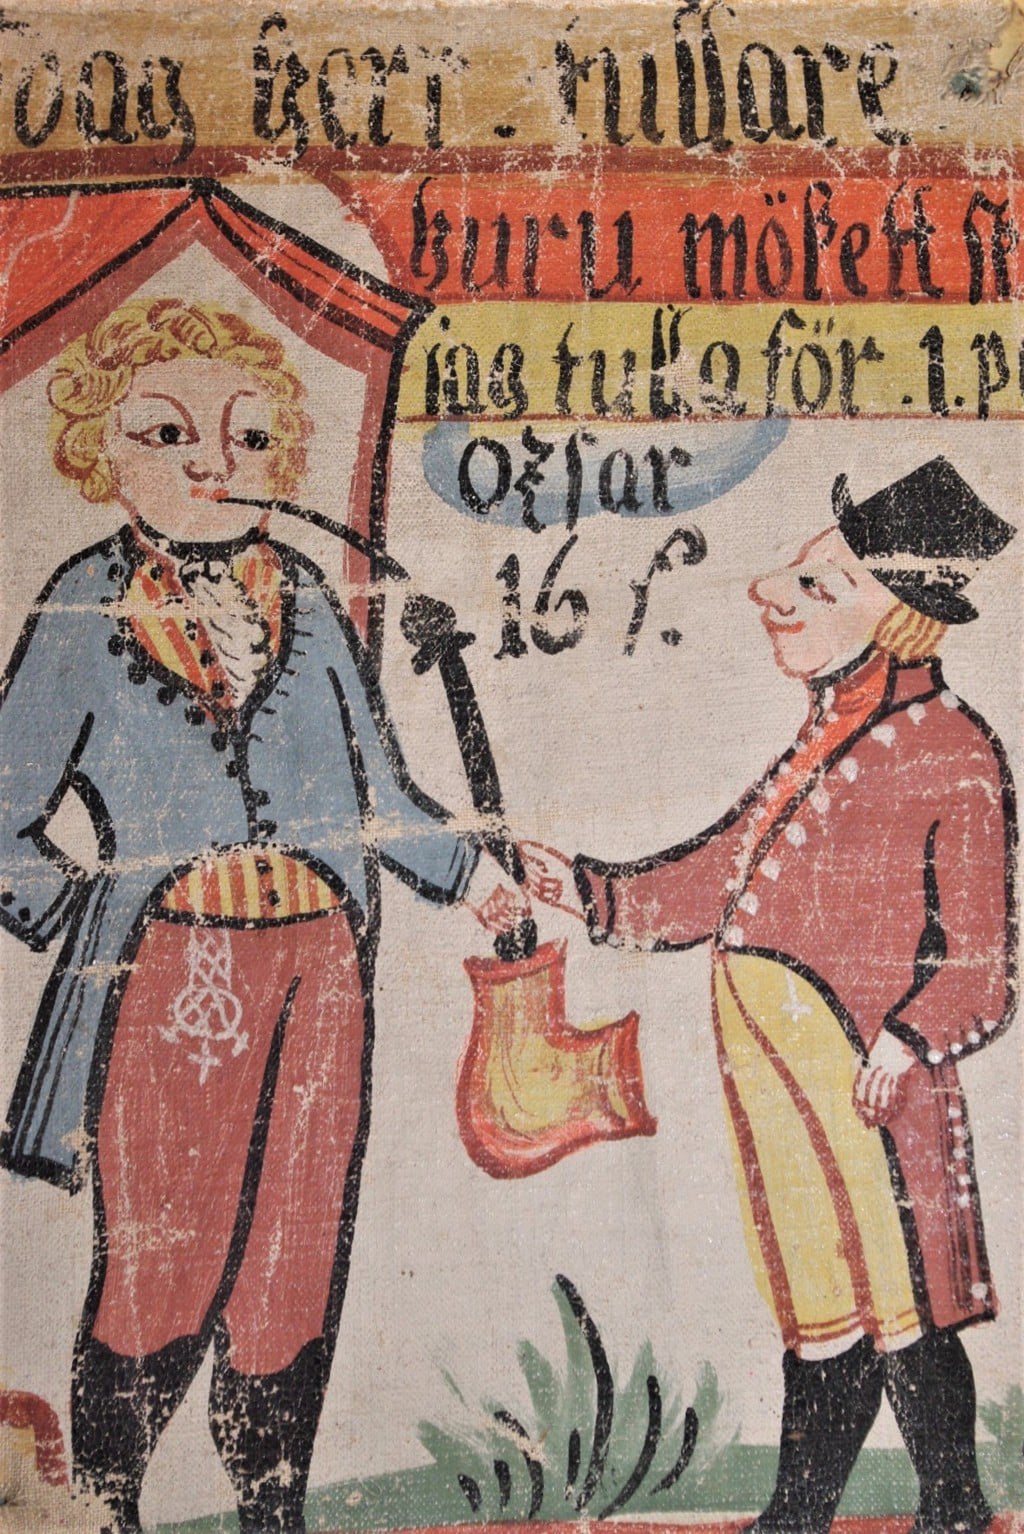 dag herr . tullare
huru mökett sk
jag tulla för .1. p
oxsar
16 f.